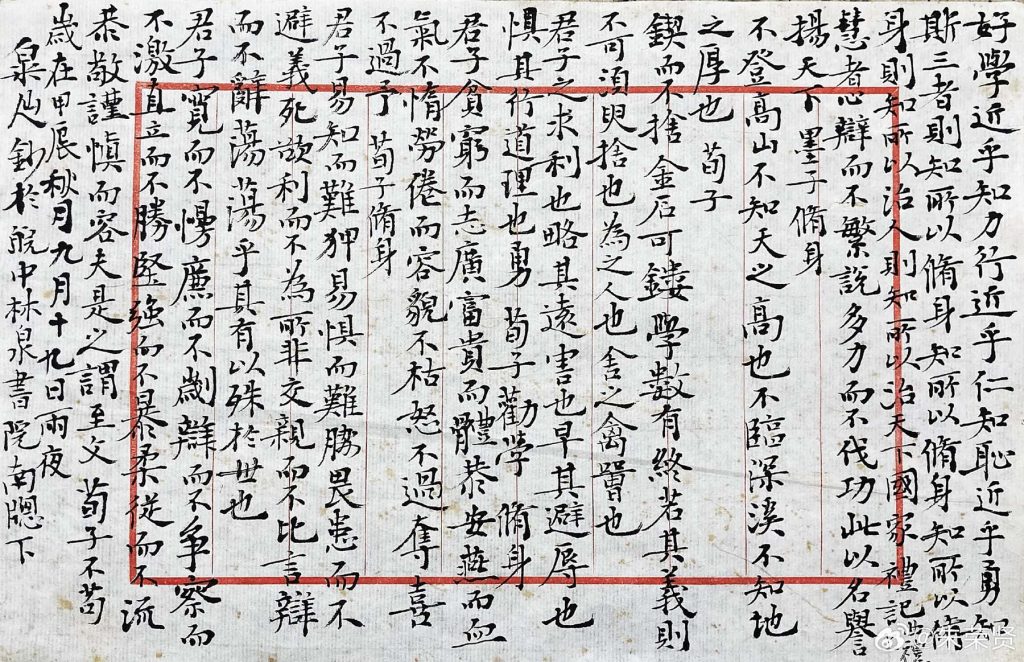 好學近乎知力行近乎仁知恥近乎勇知
斯三者則知所以脩身知所以脩身知所以脩
身則知所以治人則知所以治天下國家 禮記
慧者心辯而不繁說多力而不伐功此以名譽
揚天下 墨子 脩身
不登高山不知天之高也不臨深溪不知地
之厚也 荀子
鍥而不捨金石可鏤學數有終若其義則
不可須臾捨也為之人也舍之禽獸也
君子之求利也略其遠害也早其避辱也
懼其行道理也勇 荀子 勸學 脩身
君子貧窮而志廣富貴而體恭安燕而血
氣不惰勞倦而容貌不枯怒不過奪喜
不過予 荀子 脩身
君子易知而難狎易懼而難脅畏患而不
避義死欲利而不為所非交親而不比言辯
而不辭蕩蕩乎其有以殊於世也
君子寬而不慢廉而不劌辯而不爭察而
不激直立而不勝堅強而不暴柔從而不流
恭敬謹慎而容夫是之謂至文 荀子不苟
歲在甲辰秋月九月十九日雨夜
鈔於皖中林泉書院南牕下